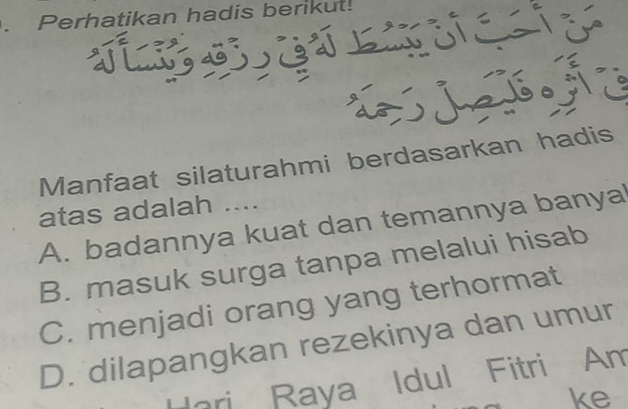 . Perhatikan hadis berikut!
مَنْ أَحَبَّ أَنْ يُبْسَطَ لَهُ فِيْ رِزْقِهِ وَيُنْسَأَ لَهُ
فِيْ أَثَرِهِ فَلْيَصِلْ رَحِمَهُ
Manfaat silaturahmi berdasarkan hadis
atas adalah ....
A. badannya kuat dan temannya banya
B. masuk surga tanpa melalui hisab
C. menjadi orang yang terhormat
D. dilapangkan rezekinya dan umur
Hari Raya Idul Fitri Am
ke